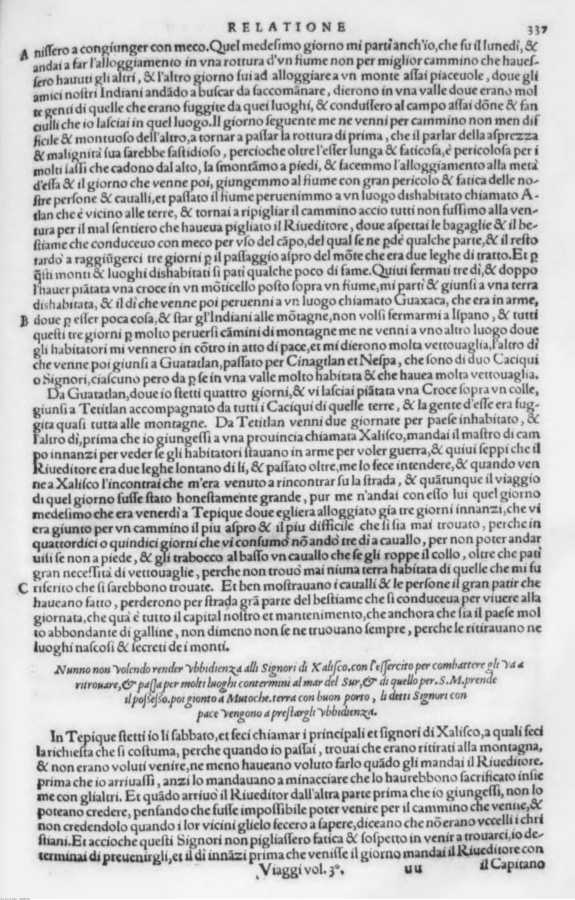 RELATIONE 337
A nissero a congiunger con meco. Quel medesimo giorno mi parti anch'io, che fu il lunedi, &
andai a far l'alloggiamento in vna rottura d'vn fiume non per miglior cammino che haues-
sero hauuti gli altri, & l'altro giorno fui ad alloggiare a vn monte assai piaceuole, doue gli
amici nostri Indiani andãdo a buscar da saccomãnare, dierono in vna valle doue erano mol
te genti di quelle che erano fuggite da quei luoghi, & condussero al campo assai dõne & fan
ciulli che io lasciai in quel luogo. Il giorno seguente me ne venni per cammino non men dif
ficile & montuoso dell'altro, a tornar a passar la rottura di prima, che il parlar della asprezza
& malignità sua sarebbe fastidioso, percioche oltre l'esser lunga & faticosa, è pericolosa per i
molti sassi che cadono dal alto, la smontãmo a piedi, & facemmo l'alloggiamento alla metà
d'essa & il giorno che venne poi, giungemmo al fiume con gran pericolo & fatica delle no-
stre persone & caualli, et passato il fiume peruenimmo a vn luogo dishabitato chiamato A-
tlan che è vicino alle terre, & tornai a ripigliar il cammino accio tutti non fussimo alla ven-
tura per il mal sentiero che haueua pigliato il Riueditore, doue aspettai le bagaglie & il be-
stiame che conduceuo con meco per vso del cãpo, del qual se ne pdè qualche parte, & il resto
tardò a raggiũgerci tre giorni p il passaggio aspro del mõte che era due leghe di tratto. Et p
q̃sti monti & luoghi dishabitati si pati qualche poco di fame. Quiui fermati tre dì, & doppo
l'hauer piãtata vna croce in vn mõticello posto sopra vn fiume, mi partì & giunsi a vna terra
dishabitata, & il dì che venne poi peruenni a vn luogo chiamato Guaxaca, che era in arme,
B doue p esser poca cosa, & star gl'Indiani alle mõtagne, non volsi fermarmi a lspano, & tutti
questi tre giorni p molto peruersi cãmini di montagne me ne venni a vno altro luogo doue
gli habitatori mi vennero in cõtro in atto di pace, et mi dierono molta vettouaglia, l'altro dì
che venne poi giunsi a Guatatlan, passato per Cinagtlan et Nespa, che sono di duo Caciqui
o Signori, ciascuno pero da p se in vna valle molto habitata & che hauea molta vettouaglia.
Da Guatatlan, doue io stetti quattro giorni, & vi lasciai piãtata vna Croce sopra vn colle,
giunsi a Tetitlan accompagnato da tutti i Caciqui di quelle terre, & la gente d'esse era fug-
gita quasi tutta alle montagne. Da Tetitlan venni due giornate per paese inhabitato, &
l'altro dì, prima che io giungessi a vna prouincia chiamata Xalisco, mandai il mastro di cam
po innanzi per veder se gli habitatori stauano in arme per voler guerra, & quiui seppi che il
Riueditore era due leghe lontano di li, & passato oltre, me lo fece intendere, & quando ven
ne a Xalisco l'incontrai che m'era venuto a rincontrar su la strada, & quãtunque il viaggio
di quel giorno fusse stato honestamente grande, pur me n'andai con esso lui quel giorno
medesimo che era venerdì a Tepique doue egli era alloggiato gia tre giorni innanzi, che vi
era giunto per vn cammino il piu aspro & il piu difficile che si sia mai trouato, perche in
quattordici o quindici giorni che vi consumò nõ andò tre dì a cauallo, per non poter andar
uili se non a piede, & gli trabocco al basso vn cauallo che se gli roppe il collo, oltre che patì
gran necessità di vettouaglie, perche non trouò mai niuna terra habitata di quelle che mi fu
C riferito che si sarebbono trouate. Et ben mostrauano i caualli & le persone il gran patir che
haueano fatto, perderono per strada grã parte del bestiame che si conduceua per viuere alla
giornata, che quà è tutto il capital nostro et mantenimento, che anchora che sia il paese mol
to abbondante di galline, non dimeno non se ne truouano sempre, perche le ritirauano ne
luoghi nascosi & secreti de i monti.
Nunno non volendo render vbbidienza alli Signori di Xalisco. con l'essercito per combatter gli va a
ritrouare, & passa per molti luoghi contermini al mar del Sur, & di quello per. S. M. prende
il possesso. poi gionto a Mutoche. terra con buon porto, li detti Signori con
pace vengono a prestargli vbbidienza.
In Tepique stetti io li sabbato, et feci chiamar i principali et signori di Xalisco, a quali feci
la richiesta che si costuma, perche quando io passai, trouai che erano ritirati alla montagna,
& non erano voluti venire, ne meno haueano voluto farlo quãdo gli mandai il Riueditore.
prima che io arriuassi, anzi lo mandauano a minacciare che lo haurebbono sacrificato insie
me con gli altri. Et quãdo arriuò il Riueditor dall'altra parte prima che io giungessi, non lo
poteano credere, pensando che fusse impossibile poter venire per il cammino che venne, &
non credendolo quando i lor vicini glielo fecero a sapere, diceano che nõ erano vccelli i chri
stiani. Et accioche questi Signori non pigliassero fatica & sospetto in venir a trouarci, io de-
terminai di preuenirgli, et il dì innãzi prima che venisse il giorno mandai il Riueditore con
Viaggi vol. 3°. uu il Capitano